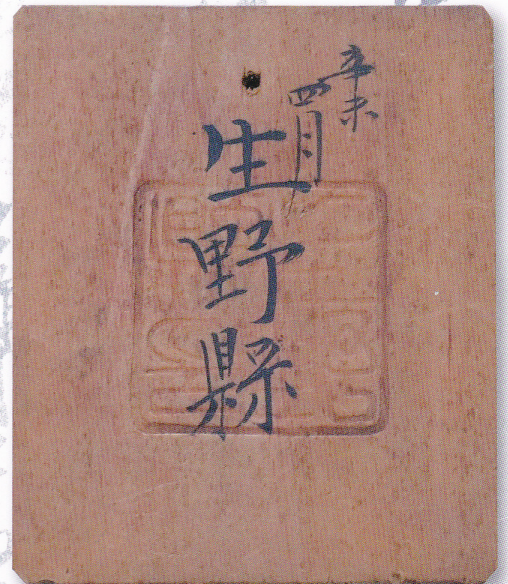 辛未
四月
生野縣